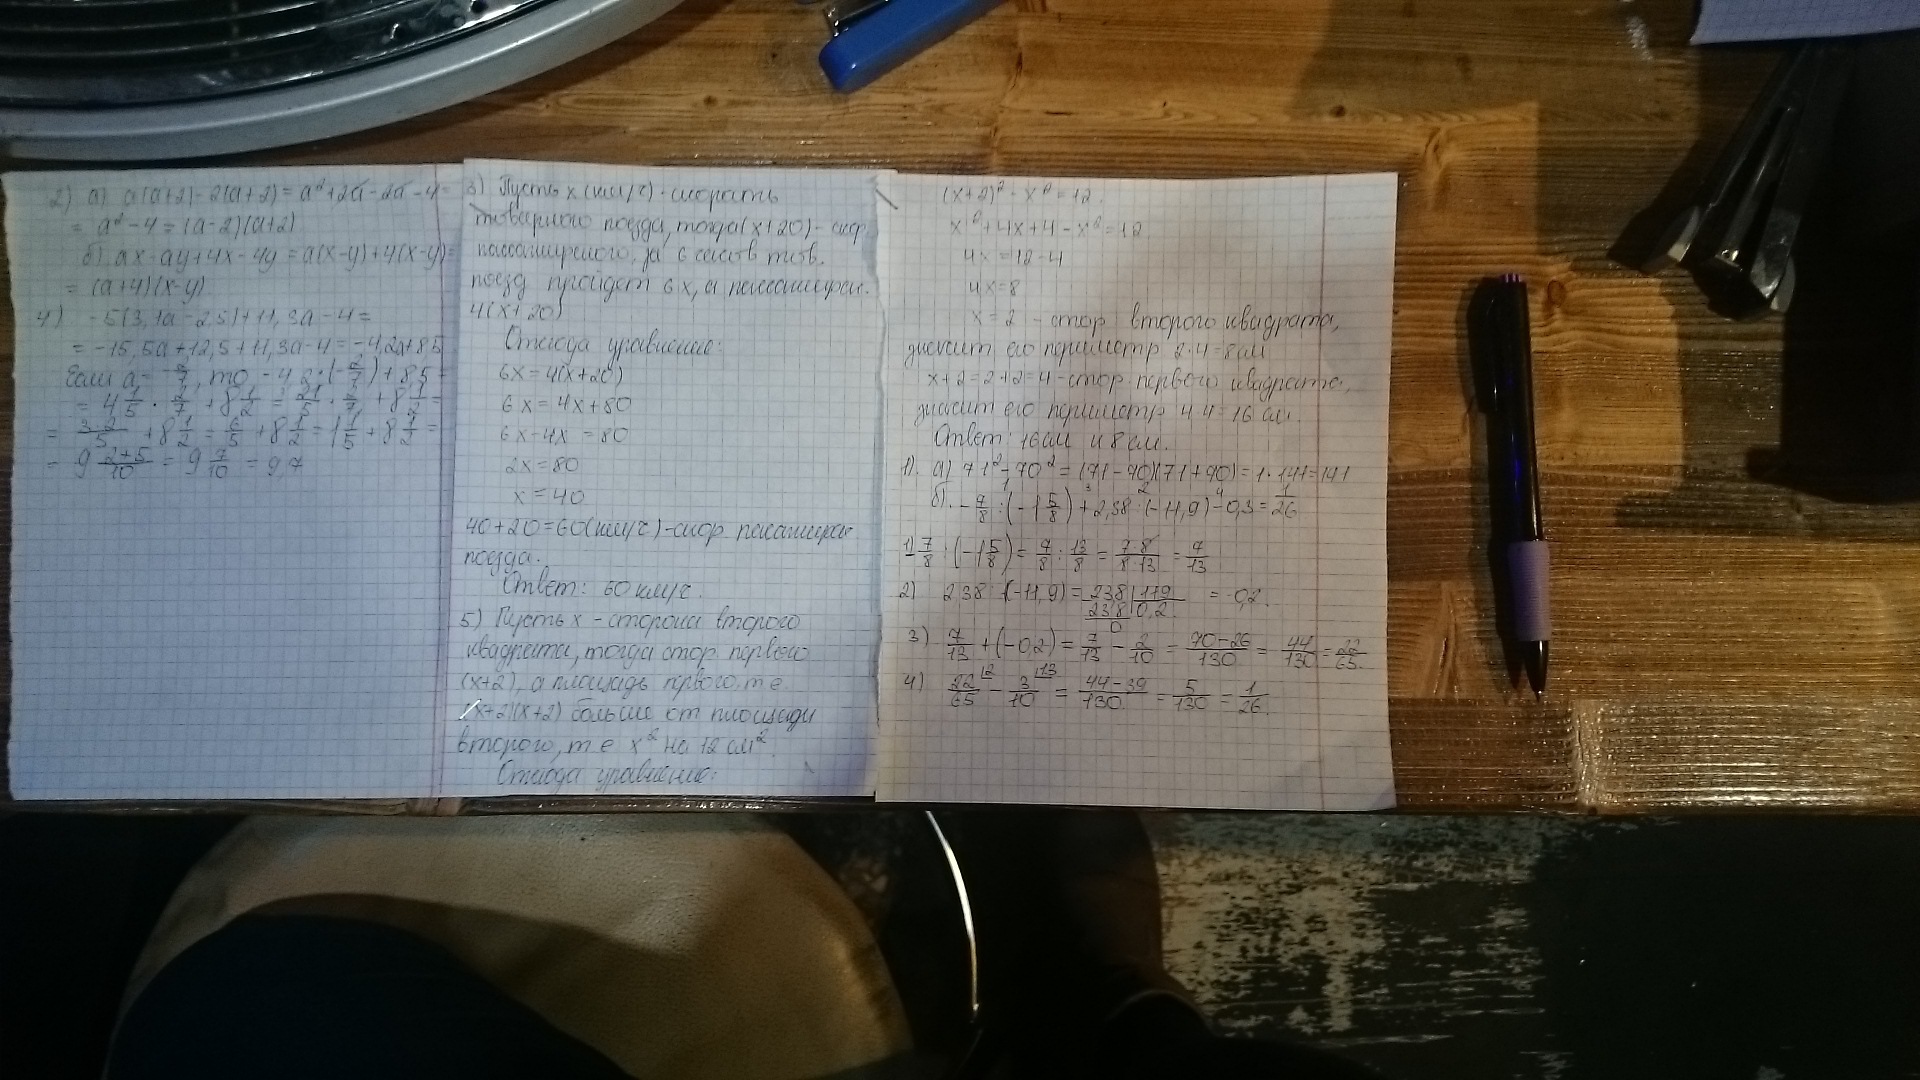 2) а) a(a+2)-2(a+2)=a²+2a-2a-4=
= a²-4=(a-2)(a+2)
б) ax-ay+4x-4y=a(x-y)+4(x-y)=
= (a+4)(x-y)
4) -5(3,1a-2,5)+11,3a-4=
= -15,5a+12,5+11,3a-4=-4,2a+8,5
Если a=-2/7, то -4,2·(-2/7)+8,5=
= 4 1/5 · 2/7 + 8 1/2 = 21/5 · 2/7 + 8 1/2 =
= 3·2/5 + 8 1/2 = 6/5 + 8 1/2 = 1 1/5 + 8 1/2 =
= 9 2+5/10 = 9 7/10 = 9,7
3) Пусть x (км/ч) - скорость
товарного поезда, тогда (x+20) - скор.
пассажирского, за 6 часов тов.
поезд пройдет 6x, а пассажирск.
4(x+20)
Отсюда уравнение:
6x=4(x+20)
6x=4x+80
6x-4x=80
2x=80
x=40
40+20=60(км/ч)-скор. пассажирс
поезда.
Ответ: 60 км/ч.
5) Пусть x - сторона второго
квадрата, тогда стор. первого
(x+2), а площадь первого, т.е.
(x+2)(x+2) больше от площади
второго, т.е x² на 12 см².
Отсюда уравнение:
(x+2)²-x²=12
x²+4x+4-x²=12
4x=12-4
4x=8
x=2 - стор. второго квадрата,
значит его периметр 2·4=8см
x+2=2+2=4-стор. первого квадрата,
значит его периметр 4·4=16 см.
Ответ: 16см и 8см.
1). а) 71²-70²=(71-70)(71+70)=1·141=141
б). -7/8:(-1 5/8)+2,38:(-11,9)-0,3=1/26
1) -7/8:(-1 5/8)=7/8:13/8=7·8/8·13=7/13
2) 2,38:(-11,9)= 238|119 =-0,2.
238|0,2
0
3) 7/13+(-0,2)=7/13-2/10=70-26/130=44/130=22/65.
4) 22/65-3/10=44-39/130=5/130=1/26.